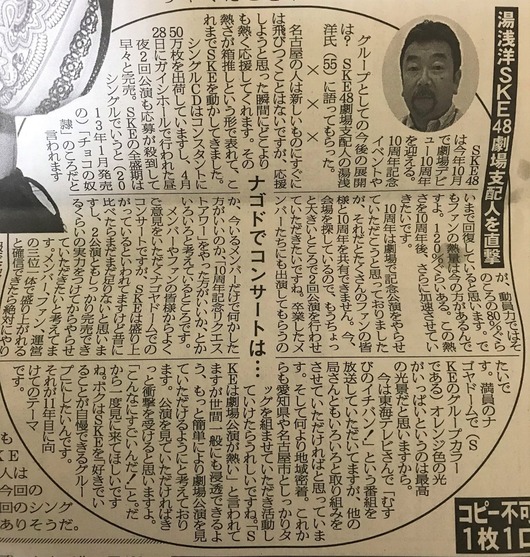 湯浅洋SKE48劇場支配人を直撃
SKE48
は今年10月
で劇場デビ
ュー10周年
を迎える。
10周年記念
イベントや
グループとしての今後の展開
は? SKE48劇場支配人の湯浅
洋氏(55)に語ってもらった。
× × × ×
名古屋の人は新しいものにすぐに
は飛びつくことはないですが、応援
しようと思った瞬間にどこより
も熱く応援してくれます。その
熱さが箱推しという形で表れて、こ
れまでSKEを動かしてきました。
シングルCDはコンスタントに
50万枚を出荷していますし、4月
28日にガイシホールで行われた昼
夜2回公演も応募が殺到して
早々と完売。SKEの全盛期は
シングルでいうと(20
13年1月発売
の)『チョコの奴
隷』のころだと
言われます
ナゴドでコンサートは…
が、動員力ではそ
のころの80%ぐら
いまで回復していると思います。で
もファンの熱量は今の方があるんで
すよ。120%くらいある。この熱
さを10周年後、さらに加速させてい
きたいです。
10周年は劇場で記念公演をやらせ
ていただこうと思っておりました
が、それだとたくさんのファンの皆
様と10周年を共有できません。今、
会場を探しているので、もうちょっ
と大きいところで公演を行わせ
ていただきたいですね。卒業したメ
ンバーたちにも出演してもらうの
か、今いるメンバーだけで何かした
方がいいのか、「10周年記念リクエス
トアワー」をやった方がいいか、とか
いろいろと考えているところです。
メンバーやファンの皆様からよく
ご意見をいただくナゴヤドームでの
コンサートですが、SKEは盛り上
がっているといわれてますけど昔に
比べたらまだまだ足りないと思いま
すし、2公演ともしっかり完売でき
るくらいの実力をつけてからやらせ
ていただきたいと考えてま
す。「メンバー、ファン、運営
の三位一体で盛り上がれる
と確信できたら絶対にやり
たいで
す。満員のナ
ゴヤドームで(S
KEのグループカラー
である)オレンジ色の光
がいっぱいというのは最高
の光景だと思いますから。
今は東海テレビさんで「むす
びのイチバン!」という番組を
放送していただいてますが、他の
局さんともいろいろと取り組みを
させていただければと思っていま
す。そして何より地域密着。これか
らも愛知県や名古屋市としっかりタ
ッグを組ませていただき活動し
ていけたらうれしいですね。「S
KEは劇場公演が熱い」と言われて
ますが世間一般にも浸透できるよ
う、もっと簡単により劇場公演を見
ていただけるようにと考えており
ます。公演を見ていただければき
っと衝撃を受けると思いますよ。
「こんなにすごいんだ!」と。だ
から一度見に来てほしいです
ね。ボクはSKEを「好きでい
ることが自慢できるグルー
プ」にしたいんです。
それが11年目に向
けてのテーマ
も
KE
人は
今回の
回のシング
ありそうだ。
コピー不可
1枚1